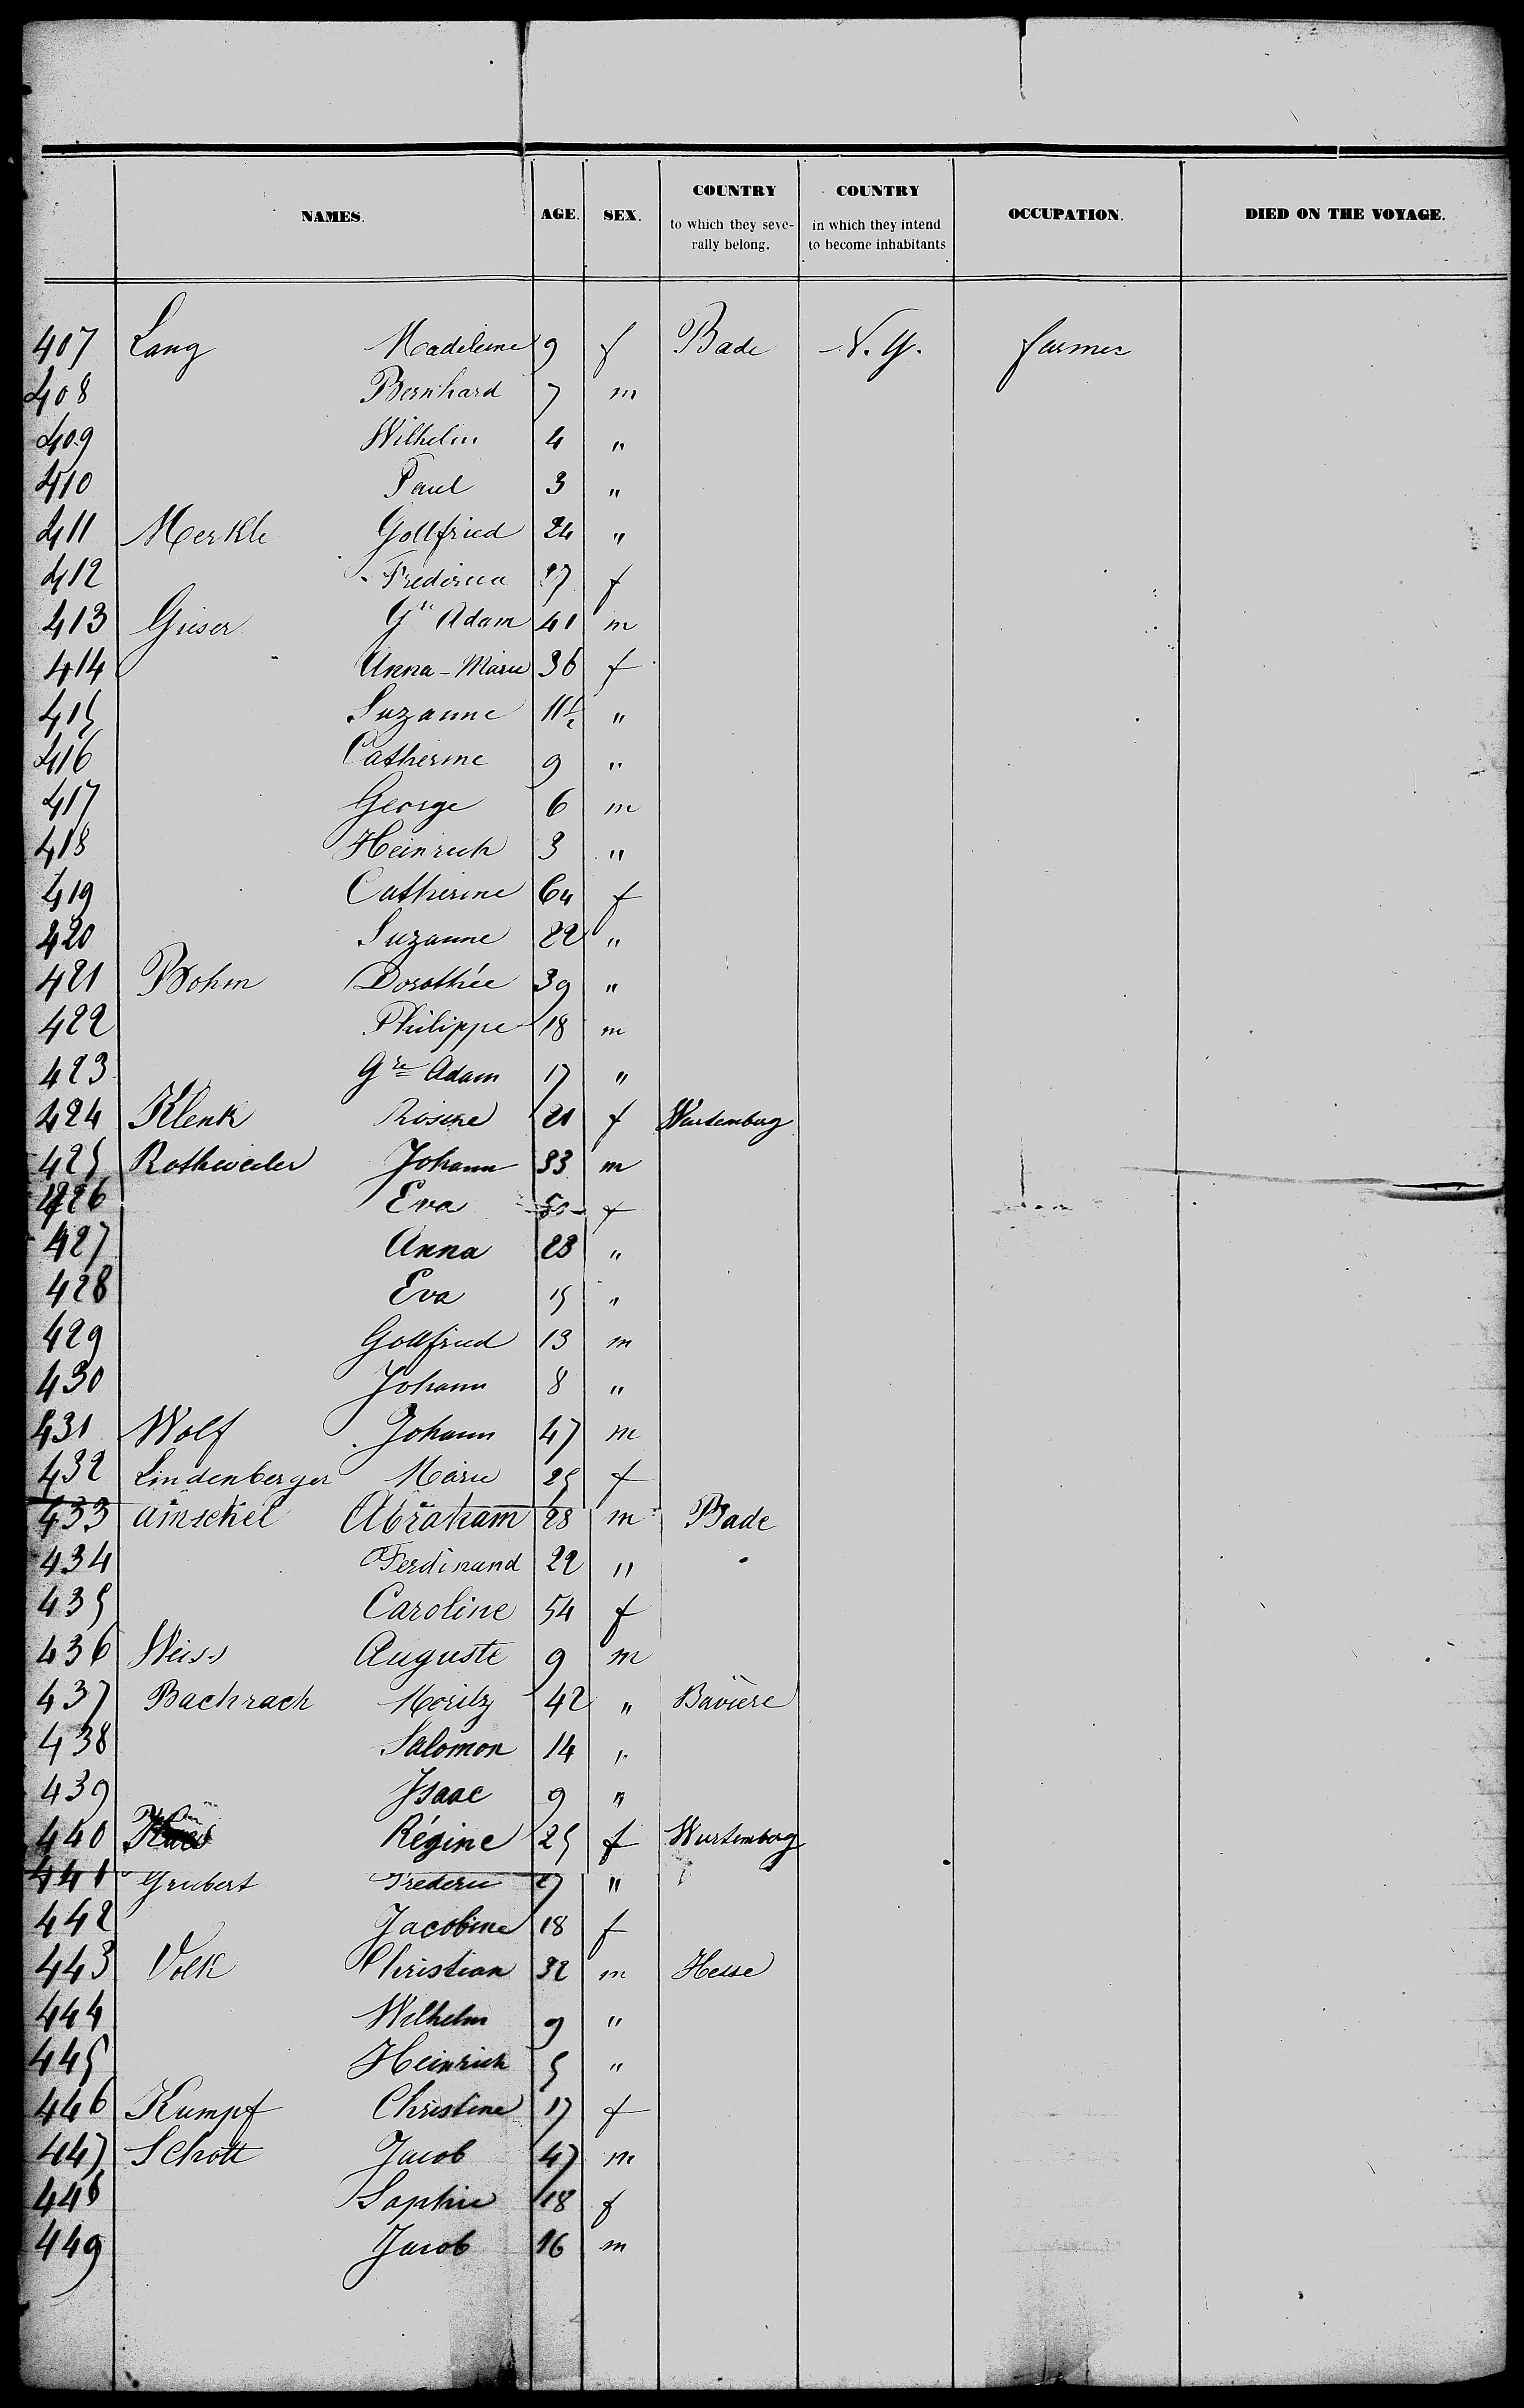 NAMES. AGE. SEX. COUNTRY to which they seve-rally belong. COUNTRY in which they intend to become inhabitants OCCUPATION. DIED ON THE VOYAGE.
407 Lang Madeleine 9 f Bade N.Y. farmer
408 Bernhard 7 m
409 Wilhelm 4 "
410 Paul 3 "
411 Merkle Gottfried 24 "
412 Frederica 27 f
413 Gieser Gre Adam 41 m
414 Anna-Marie 36 f
415 Suzanne 11½ "
416 Catherine 9 "
417 George 6 m
418 Heinrich 3 "
419 Catherine 64 f
420 Suzanne 22 "
421 Bohm Dorothée 39 "
422 Philippe 18 m
423 Gre Adam 17 "
424 Klenk Rosine 21 f Wurtemberg
425 Rothweiler Johann 33 m
426 Eva 50 f
427 Anna 23 "
428 Eva 15 "
429 Gottfried 13 m
430 Johann 8 "
431 Wolf Johann 47 m
432 Lindenberger Marie 25 f
433 Amschel Abraham 28 m Bade
434 Ferdinand 22 "
435 Caroline 54 f
436 Weiss Auguste 9 m
437 Bachrach Moritz 42 " Bavière
438 Salomon 14 "
439 Isaac 9 "
440 Régine 25 f Wurtemberg
441 Grubert Frederic 27 "
442 Jacobine 18 f
443 Volk Christian 32 m Hesse
444 Wilhelm 9 "
445 Heinrich 5 "
446 Kumpf Christine 17 f
447 Schott Jacob 47 m
448 Sophie 18 f
449 Jacob 16 m